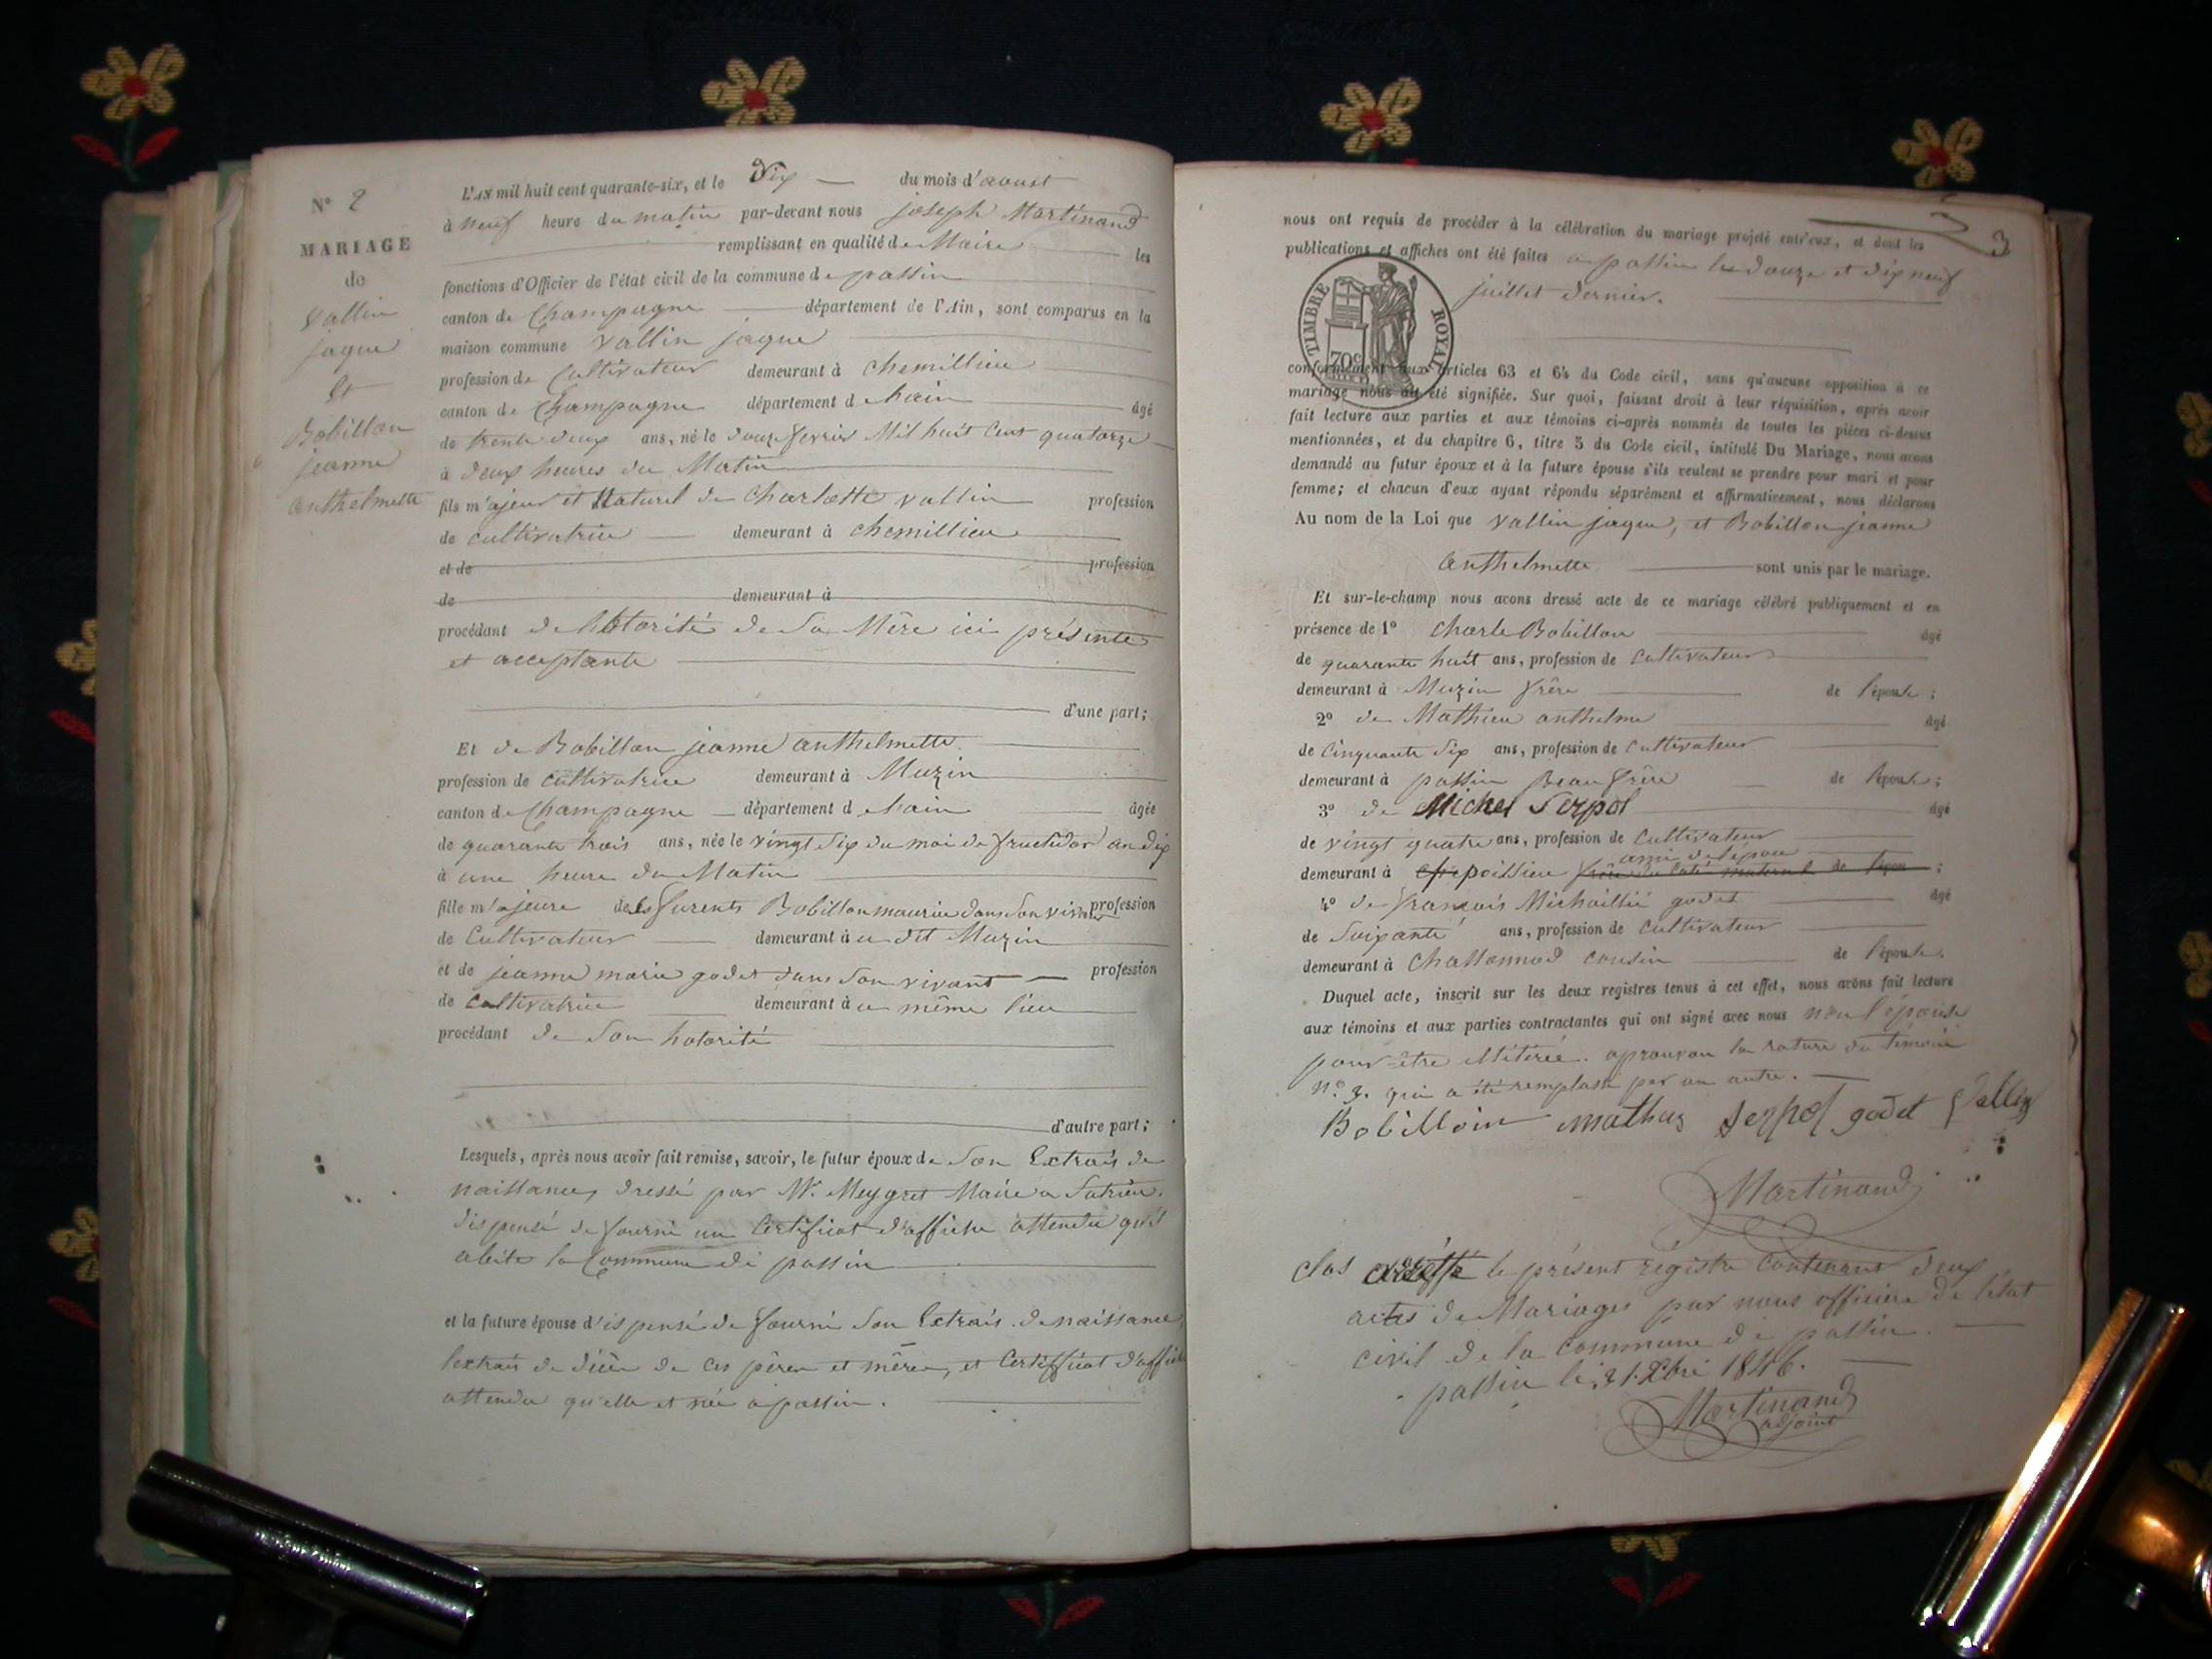 N° 2
MARIAGE
de
Vallin
jaque
Et
Bobillon
jeanne
anthelmette
L'AN mil huit cent quarante-six, et le Dix du mois d'aoust
à neuf heure du matin par-devant nous joseph Martinand
remplissant en qualité de Maire les
fonctions d'Officier de l'état civil de la commune de passin
canton de Champagne département de l'Ain, sont comparus en la
maison commune Vallin jaque
profession de Cultivateur demeurant à chemillieu
canton de Champagne département d e lain âgé
de trente deux ans, né le douze fevrier Mil huit Cent quatorze
à deux heures du Matin
fils m'ajeur et Naturel de Charlotte vallin profession
de cultivatrice demeurant à chemillieu
et de profession
de demeurant à
procédant de lhotorité de Sa Mère ici présente
et acceptante
d'une part;
Et de Bobillon jeanne anthelmette
profession de cultivatrice demeurant à Muzin
canton de Champagne département d e lain âgée
de quarante trois ans, née le vingt Six du moi de fructidor an dix
à une heure du Matin
fille m'ajeure de les furents Bobillon maurice dans Son vivant profession
de Cultivateur demeurant à u dit Muzin
et de jeanne marie godet dans Son vivant profession
de cultivatrice demeurant à u même lieu
procédant de Son hotorité
d'autre part;
Lesquels, après nous avoir fait remise, savoir, le futur époux de Son Extrais de
naissance, dressé par Mr. Meygret Maire a Sutrieu.
dispensé de fourni un Certificat d'affiche attendu qu'il
abite la Commune de passin
et la future épouse d'ispensé de fourni Son Extrais de naissance,
lextrais de décè de ces père et mère, et Certifficat d'affiche
attendu qu'elle et née à passin.
3
nous ont requis de procéder à la célébration du mariage projeté entr'eux, et dont les
publications et affiches ont été faites a passin le douze et dix neuf
juillet dernier.
TIMBRE ROYAL
70c
conformément aux articles 63 et 64 du Code civil, sans qu'aucune opposition à ce
mariage nous ait été signifiée. Sur quoi, faisant droit à leur réquisition, après avoir
fait lecture aux parties et aux témoins ci-après nommés de toutes les pièces ci-dessus
mentionnées, et du chapitre 6, titre 5 du Code civil, intitulé Du Mariage, nous avons
demandé au futur époux et à la future épouse s'ils veulent se prendre pour mari et pour
femme; et chacun d'eux ayant répondu séparément et affirmativement, nous déclarons
Au nom de la Loi que Vallin jaque, et Bobillon jeanne
anthelmette sont unis par le mariage.
Et sur-le-champ nous avons dressé acte de ce mariage célébré publiquement et en
présence de 1° Charle Bobillon âgé
de quarante huit ans, profession de Cultivateur
demeurant à Muzin frère de l'épouse;
2° de Mathieu anthelme âgé
de Cinquante Six ans, profession de Cultivateur
demeurant à passin Beau frère de lépouse;
3° de Michel Serpol âgé
de vingt quatre ans, profession de Cultivateur
ami de lépou
demeurant à poissieu frère du coté maternel de lépou;
4° de francois Michallié godet âgé
de Soixante ans, profession de Cultivateur
demeurant à Chassonnod cousin de lépouse.
Duquel acte, inscrit sur les deux registres tenus à cet effet, nous avons fait lecture
aux témoins et aux parties contractantes qui ont signé avec nous non l'épouse
pour être illitérée. aprouvon la rature du témoin
N°. 3. qui a été remplasé par un autre.
Bobilloin mathus serpol godet Vallin
Martinand
clos le présent régistre Contenant deux
actes de Mariages par nous officiere de l'état
civil de la commune de passin.
passin le 31. Xbre 1846.
Martinand
adjoint